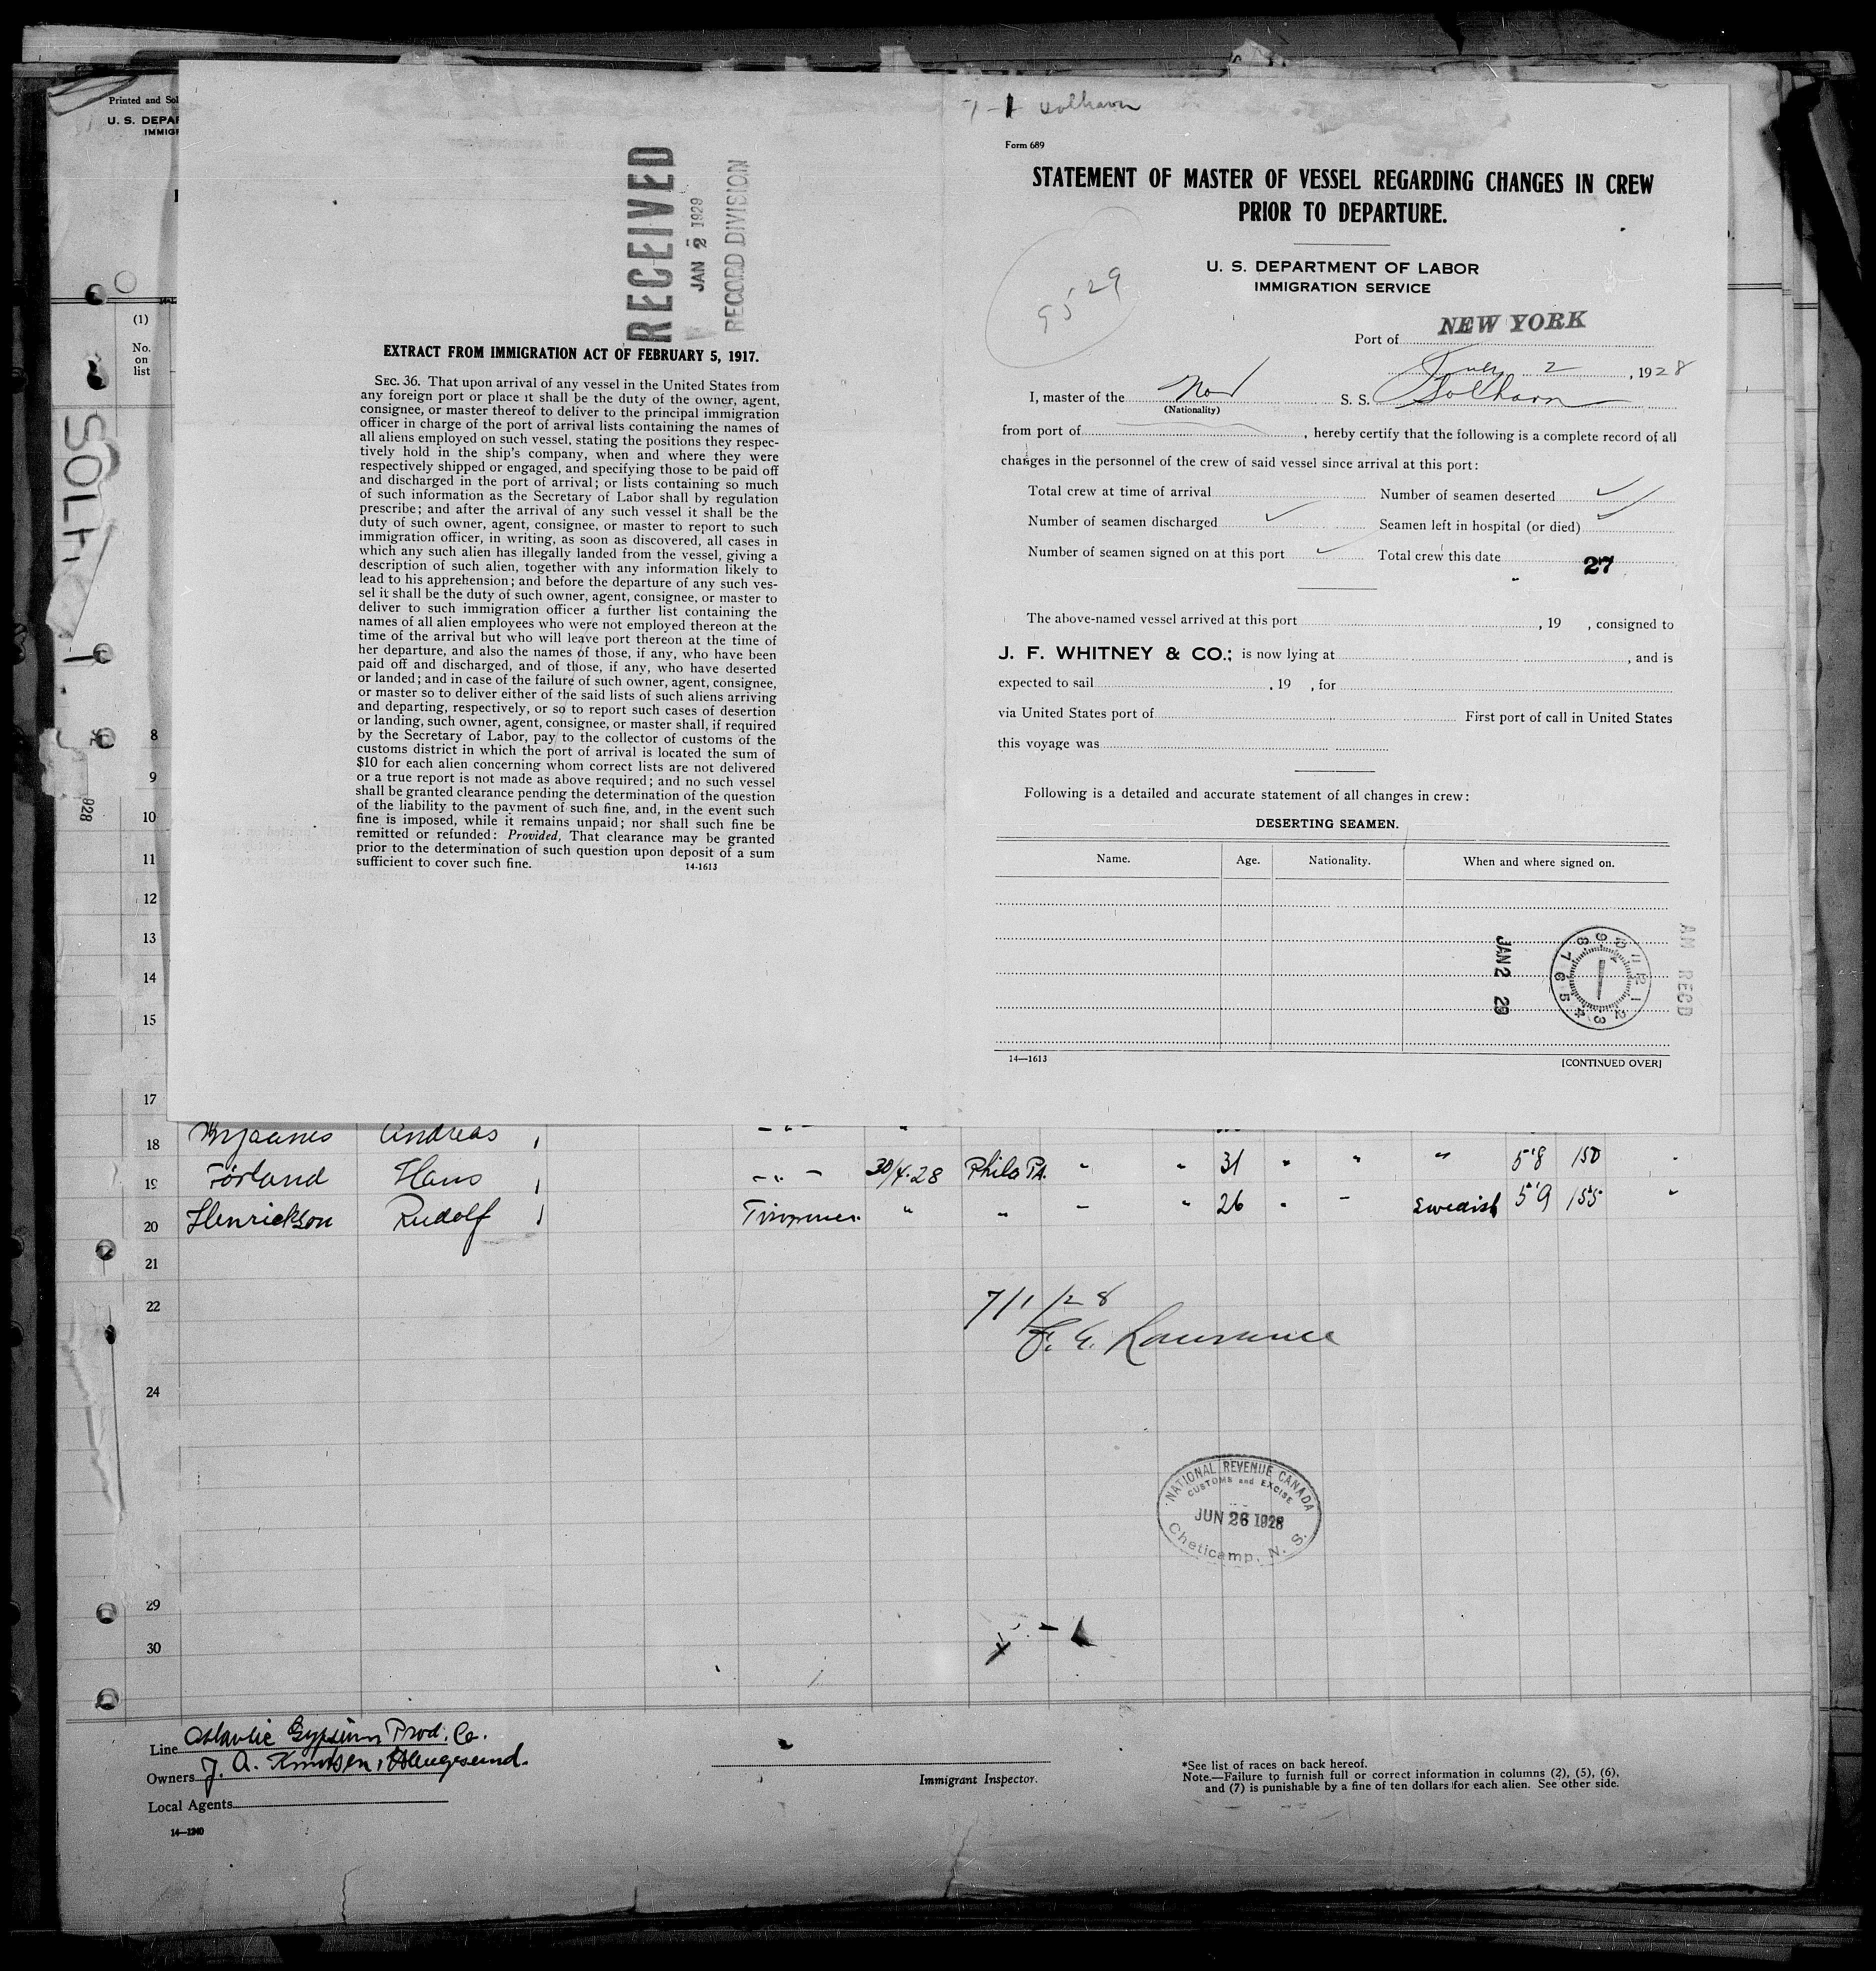 Printed and Sol
U. S. DEPAR
IMMIGR
(1)
No.
on
list
SOLH
928
8
9
10
11
12
13
14
15
17
RECEIVED
JAN 2 1929
RECORD DIVISION
EXTRACT FROM IMMIGRATION ACT OF FEBRUARY 5, 1917.
SEC. 36. That upon arrival of any vessel in the United States from
any foreign port or place it shall be the duty of the owner, agent,
consignee, or master thereof to deliver to the principal immigration
officer in charge of the port of arrival lists containing the names of
all aliens employed on such vessel, stating the positions they respec-
tively hold in the ship's company, when and where they were
respectively shipped or engaged, and specifying those to be paid off
and discharged in the port of arrival; or lists containing so much
of such information as the Secretary of Labor shall by regulation
prescribe; and after the arrival of any such vessel it shall be the
duty of such owner, agent, consignee, or master to report to such
immigration officer, in writing, as soon as discovered, all cases in
which any such alien has illegally landed from the vessel, giving a
description of such alien, together with any information likely to
lead to his apprehension; and before the departure of any such ves-
sel it shall be the duty of such owner, agent, consignee, or master to
deliver to such immigration officer a further list containing the
names of all alien employees who were not employed thereon at the
time of the arrival but who will leave port thereon at the time of
her departure, and also the names of those, if any, who have been
paid off and discharged, and of those, if any, who have deserted
or landed; and in case of the failure of such owner, agent, consignee,
or master so to deliver either of the said lists of such aliens arriving
and departing, respectively, or so to report such cases of desertion
or landing, such owner, agent, consignee, or master shall, if required
by the Secretary of Labor, pay to the collector of customs of the
customs district in which the port of arrival is located the sum of
$10 for each alien concerning whom correct lists are not delivered
or a true report is not made as above required; and no such vessel
shall be granted clearance pending the determination of the question
of the liability to the payment of such fine, and, in the event such
fine is imposed, while it remains unpaid; nor shall such fine be
remitted or refunded: Provided, That clearance may be granted
prior to the determination of such question upon deposit of a sum
sufficient to cover such fine. 14-1613
7-1 Solhavn
Form 689
STATEMENT OF MASTER OF VESSEL REGARDING CHANGES IN CREW
PRIOR TO DEPARTURE.
U. S. DEPARTMENT OF LABOR
IMMIGRATION SERVICE
9529
Port of NEW YORK
July 2, 1928
I, master of the Nor S. S. Solhavn
(Nationality)
from port of , hereby certify that the following is a complete record of all
changes in the personnel of the crew of said vessel since arrival at this port:
Total crew at time of arrival Number of seamen deserted
Number of seamen discharged Seamen left in hospital (or died)
Number of seamen signed on at this port Total crew this date 27
The above-named vessel arrived at this port , 19 , consigned to
J. F. WHITNEY & CO.; is now lying at , and is
expected to sail , 19 , for
via United States port of First port of call in United States
this voyage was
Following is a detailed and accurate statement of all changes in crew:
DESERTING SEAMEN.
Name. Age. Nationality. When and where signed on.
JAN 2 29
AM RECD
14—1613 [CONTINUED OVER]
18 Andreas
19 Förland Hans " 30/4.28 Phila PA. " " 31 " " " 5'8 150 "
20 Henrickson Rudolf " " " " 26 " " Swedish 5'9 155 "
21
22
24
29
30
7/1/28
JUN 26 1928
NATIONAL REVENUE CANADA
CUSTOMS and EXCISE
Cheticamp, N. S.
Line Atlantic Gypsum Prod. Co.
Owners J. A. Knutsen, Haugesund.
Local Agents
14—1240
Immigrant Inspector.
*See list of races on back hereof.
Note.—Failure to furnish full or correct information in columns (2), (5), (6),
and (7) is punishable by a fine of ten dollars for each alien. See other side.